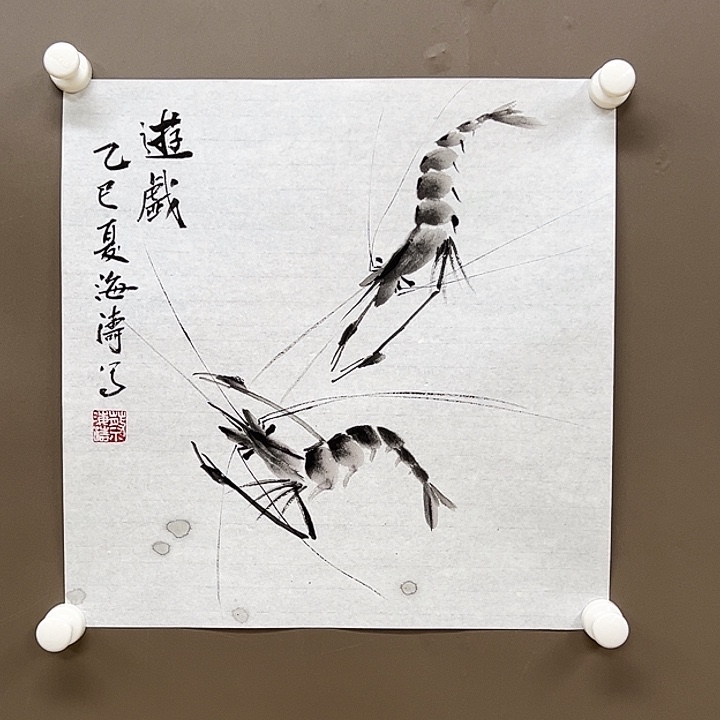 遊戲
乙巳夏海濤写